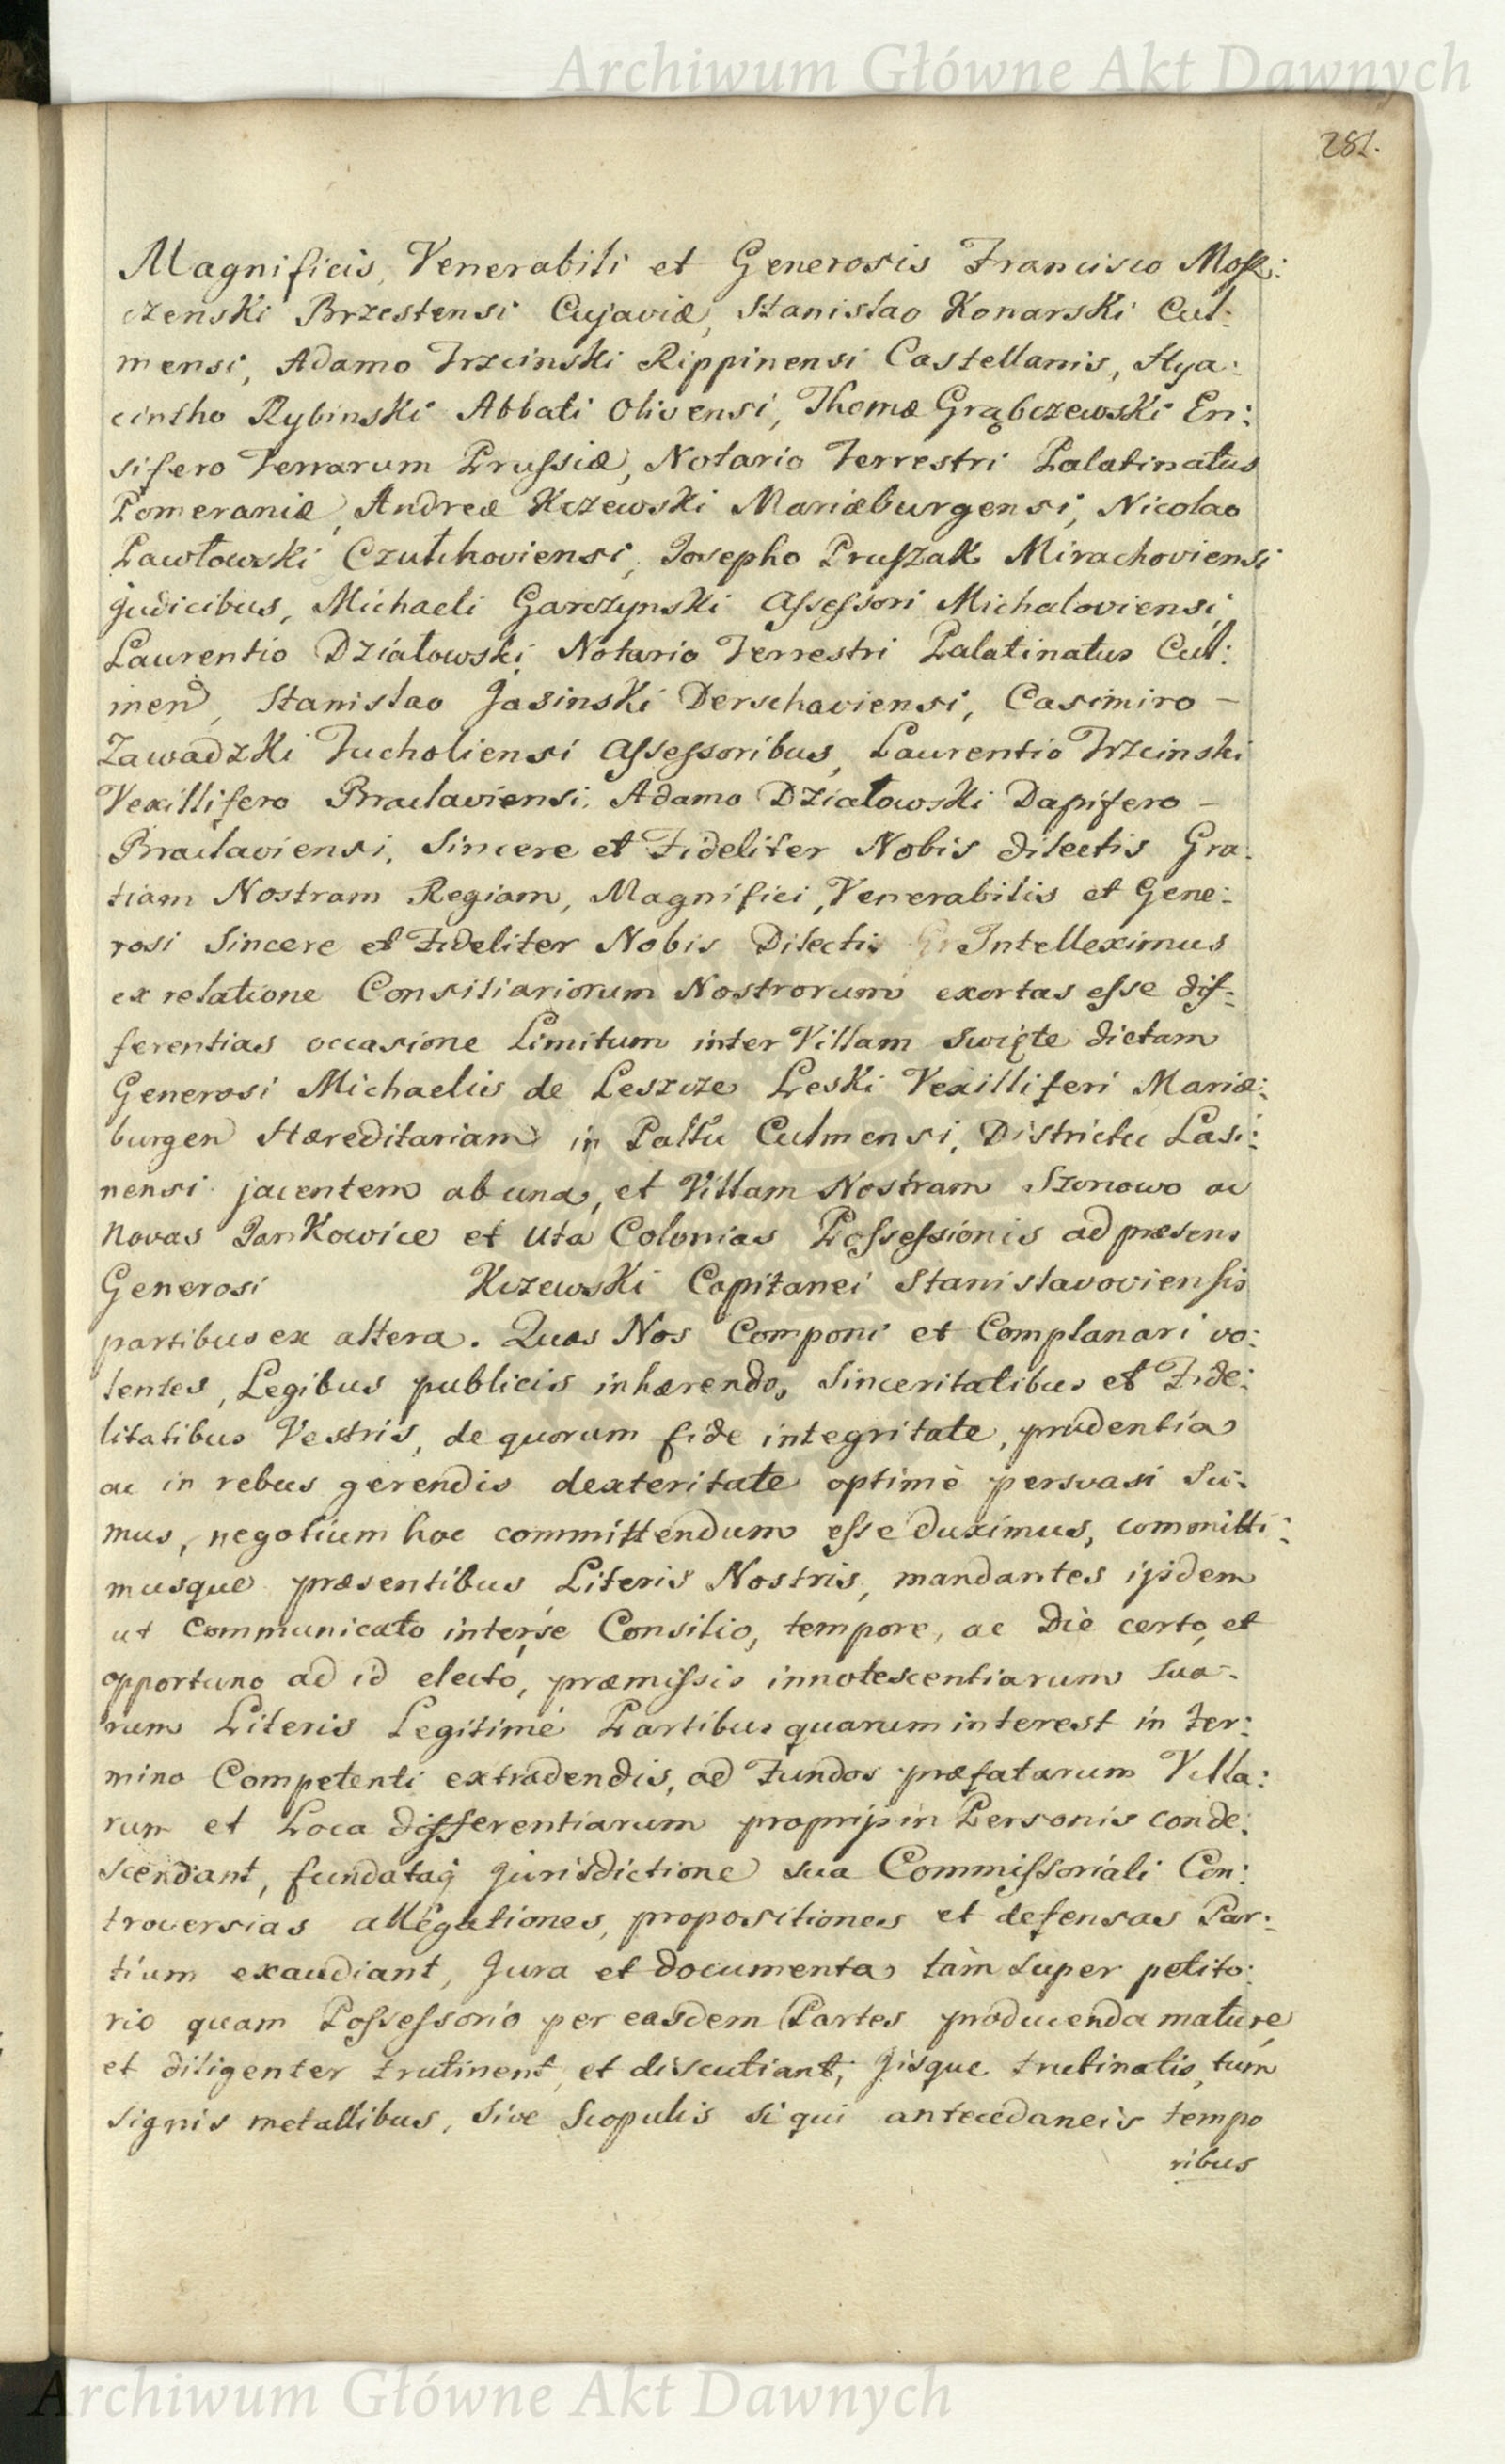 Archiwum Główne Akt Dawnych
281.
Magnificis, Venerabili et Generosis Francisco Mosz:
czenski Brzestensi Cujaviæ, Stanislao Konarski Cul:
mensi, Adamo Trzcinski Rippinensi Castellanis, Hya:
cintho Rybinski Abbati Olivensi, Thomæ Grąbczewski En:
sifero Terrarum Prussiæ, Notario Terrestri Palatinatus
Pomeraniæ, Andreæ Kczewski Mariæburgensi, Nicolao
Pawłowski Czułchoviensi, Josepho Pruszak Mirachoviensi
Judicibus, Michaeli Garczynski Assessori Michaloviensi,
Laurentio Działowski Notario Terrestri Palatinatus Cul:
men, Stanislao Jasinski Derschaviensi, Casimiro –
Zawadzki Tucholiensi Assessoribus, Laurentio Trzcinski
Vexillifero Braclaviensi, Adamo Działowski Dapifero –
Braclaviensi, Sincere et Fideliter Nobis dilectis Gra:
tiam Nostram Regiam, Magnifici, Venerabilis et Gene:
rosi Sincere et Fideliter Nobis Dilecti, Intelleximus
ex relatione Consiliariorum Nostrorum exortas esse dif:
ferentias occasione Limitum inter Villam Swięte dictam
Generosi Michaelis de Leszcze Leski Vexilliferi Mariæ:
burgen Hæreditariam in Palttu Culmensi, Districtu Lasi:
nensi jacentem ab una, et Villam Nostram Szonowo ac
novas Jankowice et Uta Colonias Possessionis ad præsens
Generosi Kczewski Capitanei Stanislavoviensis
partibus ex altera. Quas Nos Componi et Complanari vo:
lentes, Legibus publicis inhærendo, Sinceritatibus et Fide:
litatibus Vestris, de quorum fide integritate, prudentia
ac in rebus gerendis dexteritate optimè persvasi Su:
mus, negotium hoc committendum esse duximus, committi:
musque præsentibus Literis Nostris, mandantes ijsdem
ut Communicato inter se Consilio, tempore, ac Die certo, et
opportuno ad id electo, præmissis innotescentiarum Sua:
rum Literis Legitimé Partibus quarum interest in ter:
mino Competenti extradendis, ad Fundos præfatarum Villa:
rum et Loca differentiarum proprijs in Personis conde:
scendant, fundataq Jurisdictione sua Commissoriali Con:
troversias allegationes, propositiones et defensas Par:
tium exaudiant, Jura et documenta tàm super petito:
rio quam Possessorio per easdem Partes producenda mature
et diligenter trutinent, et discutiant, Jisque trutinatis, tum
signis metallibus, sive Scopulis si qui antecedaneis tempo
ribus
Archiwum Główne Akt Dawnych